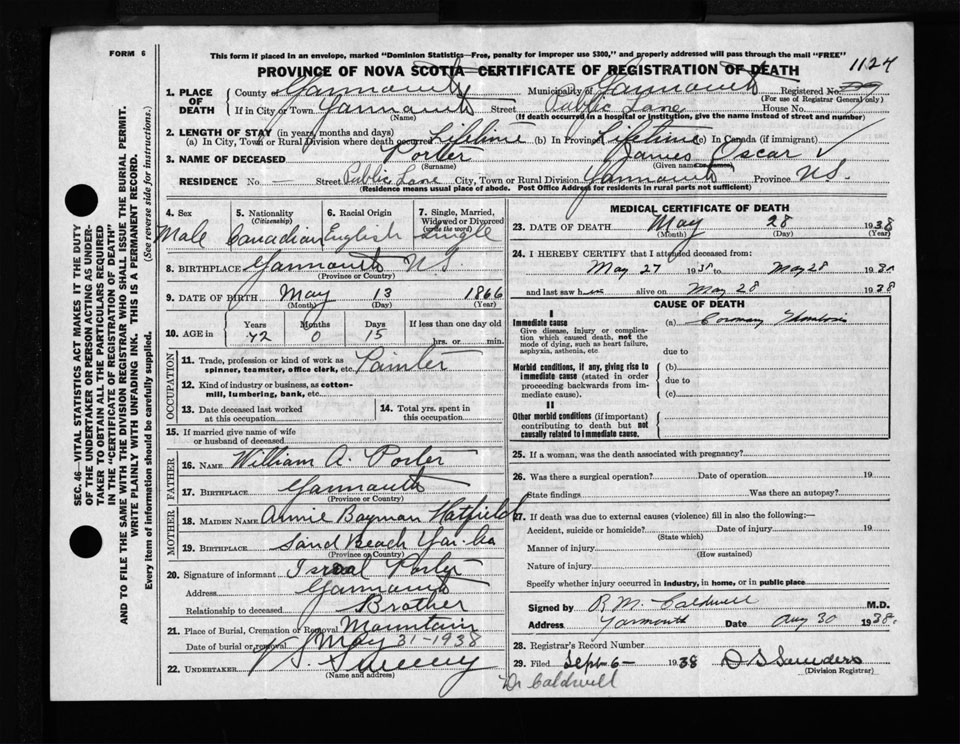 FORM 6
This form if placed in an envelope, marked "Dominion Statistics—Free, penalty for improper use $300," and properly addressed will pass through the mail "FREE"
PROVINCE OF NOVA SCOTIA—CERTIFICATE OF REGISTRATION OF DEATH
1124
1. PLACE OF DEATH
County of Yarmouth Municipality of Yarmouth Registered No.
(For use of Registrar General only)
If in City or Town Yarmouth Street Public Lane House No.
(Name) (If death occurred in a hospital or institution, give the name instead of street and number)
2. LENGTH OF STAY (in years, months and days)
(a) In City, Town or Rural Division where death occurred Lifetime (b) In Province Lifetime (c) In Canada (if immigrant)
3. NAME OF DECEASED Porter James Oscar ✓
(Surname) (Given name or names)
RESIDENCE No. — Street Public Lane City, Town or Rural Division Yarmouth Province N.S.
(Residence means usual place of abode. Post Office Address for residents in rural parts not sufficient)
4. Sex Male
5. Nationality (Citizenship) Canadian
6. Racial Origin English
7. Single, Married, Widowed or Divorced (write the word) Single
8. BIRTHPLACE Yarmouth N.S.
(Province or Country)
9. DATE OF BIRTH May 13 1866
(Month) (Day) (Year)
10. AGE in Years Months Days If less than one day old
72 0 15 hrs. or min.
OCCUPATION
11. Trade, profession or kind of work as spinner, teamster, office clerk, etc. Painter
12. Kind of industry or business, as cotton-mill, lumbering, bank, etc.
13. Date deceased last worked at this occupation
14. Total yrs. spent in this occupation
15. If married give name of wife or husband of deceased
FATHER
16. NAME William A. Porter
17. BIRTHPLACE Yarmouth
(Province or Country)
MOTHER
18. MAIDEN NAME Annie Bayman Hatfield
19. BIRTHPLACE Sand Beach Yar. Co
(Province or Country)
20. Signature of informant Israel Porter
Address Yarmouth
Relationship to deceased Brother
21. Place of Burial, Cremation or Removal Mountain
Date of burial or removal May 31-1938
22. UNDERTAKER V. S. Sweeny
(Name and address)
MEDICAL CERTIFICATE OF DEATH
23. DATE OF DEATH May 28 1938
(Month) (Day) (Year)
24. I HEREBY CERTIFY that I attended deceased from:
May 27 1938 to May 28 1938
and last saw him alive on May 28 1938
CAUSE OF DEATH
I
Immediate cause (a) Coronary Thrombosis
Give disease, injury or complication which caused death, not the mode of dying, such as heart failure, asphyxia, asthenia, etc
due to
Morbid conditions, if any, giving rise to immediate cause (stated in order proceeding backwards from immediate cause).
(b)
due to
(c)
II
Other morbid conditions (if important) contributing to death but not causally related to immediate cause.
25. If a woman, was the death associated with pregnancy?
26. Was there a surgical operation? Date of operation 19
State findings Was there an autopsy?
27. If death was due to external causes (violence) fill in also the following:—
Accident, suicide or homicide? Date of injury 19
(State which)
Manner of injury
(How sustained)
Nature of injury
Specify whether injury occurred in industry, in home, or in public place
Signed by R. M. Caldwell M.D.
Address Yarmouth Date Aug 30 1938.
28. Registrar's Record Number
29. Filed Sept. 6- 1938 D S Saunders
(Division Registrar)
Dr Caldwell
SEC. 46—VITAL STATISTICS ACT MAKES IT THE DUTY
OF THE UNDERTAKER OR PERSON ACTING AS UNDER-
TAKER TO OBTAIN ALL THE PARTICULARS REQUIRED
IN THE "CERTIFICATE OF REGISTRATION OF DEATH"
AND TO FILE THE SAME WITH THE DIVISION REGISTRAR WHO SHALL ISSUE THE BURIAL PERMIT.
WRITE PLAINLY WITH UNFADING INK. THIS IS A PERMANENT RECORD.
Every item of information should be carefully supplied. (See reverse side for instructions.)